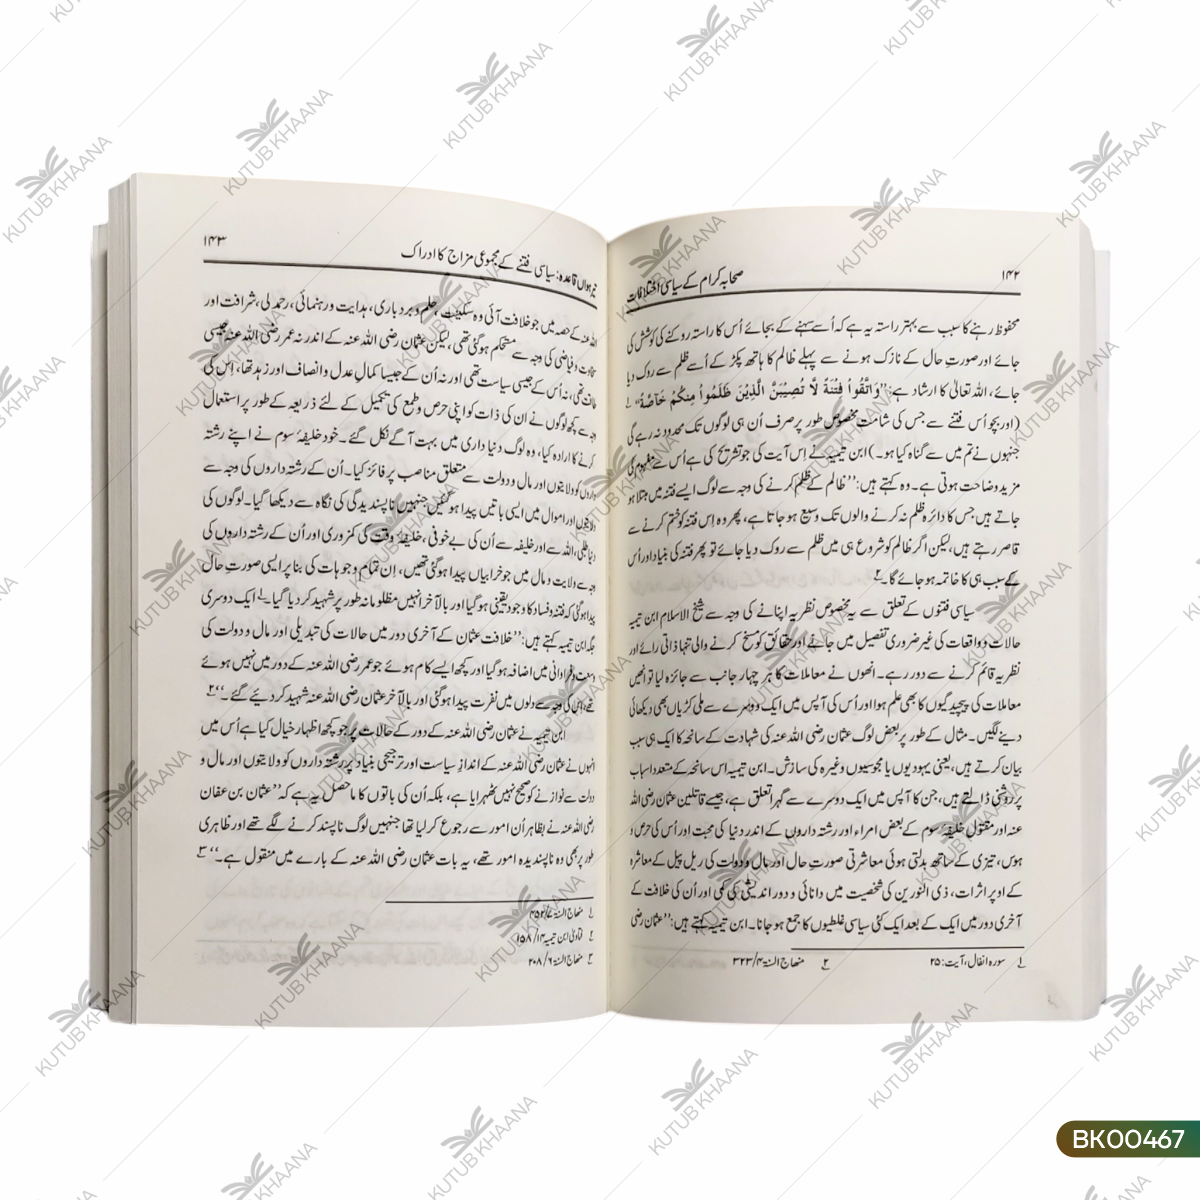 ۱۴۲
صحابہ کرام کے سیاسی اختلافات
محفوظ رہنے کا سبب سے بہتر راستہ یہ ہے کہ اُسے سہنے کے بجائے اُس کا راستہ روکنے کی کوشش کی
جائے اور صورتِ حال کے نازک ہونے سے پہلے ظالم کا ہاتھ پکڑ کے اُسے ظلم سے روک دیا
جائے، اللہ تعالیٰ کا ارشاد ہے: ”وَاتَّقُوا فِتْنَةً لَّا تُصِيبَنَّ الَّذِينَ ظَلَمُوا مِنكُمْ خَاصَّةً“ ۱؎
(اور بچو اُس فتنے سے جس کی شامت مخصوص طور پر صرف اُن ہی لوگوں تک محدود نہ رہے گی
جنہوں نے تم میں سے گناہ کیا ہو۔) ابن تیمیہ نے اِس آیت کی جو تشریح کی ہے اُس سے مفہوم کی
مزید وضاحت ہوتی ہے۔ وہ کہتے ہیں: ”ظالم کے ظلم کرنے کی وجہ سے لوگ ایسے فتنہ میں مبتلا ہو
جاتے ہیں جس کا دائرہ ظلم نہ کرنے والوں تک وسیع ہو جاتا ہے، پھر وہ اِس فتنہ کو ختم کرنے سے
قاصر رہتے ہیں، لیکن اگر ظالم کو شروع ہی میں ظلم سے روک دیا جائے تو پھر فتنہ کی بنیاد اور اُس
کے سبب ہی کا خاتمہ ہو جائے گا۔ ۲؎
سیاسی فتنوں کے تعلق سے یہ مخصوص نظریہ اپنانے کی وجہ سے شیخ الاسلام ابن تیمیہ
حالات و واقعات کی غیر ضروری تفصیل میں جانے اور حقائق کو مسخ کرنے والی تنہا ذاتی رائے اور
نظریہ قائم کرنے سے دور رہے۔ انھوں نے معاملات کا ہر چہار جانب سے جائزہ لیا تو انھیں
معاملات کی پیچیدگیوں کا بھی علم ہوا اور اُس کی آپس میں ایک دوسرے سے ملی کڑیاں بھی دیکھائی
دینے لگیں۔ مثال کے طور پر بعض لوگ عثمان رضی اللہ عنہ کی شہادت کے سانحہ کا ایک ہی سبب
بیان کرتے ہیں، یعنی یہودیوں یا مجوسیوں وغیرہ کی سازش۔ ابن تیمیہ اس سانحہ کے متعدد اسباب
پر روشنی ڈالتے ہیں، جن کا آپس میں ایک دوسرے سے گہرا تعلق ہے، جیسے قاتلین عثمان رضی اللہ
عنہ اور مقتول خلیفۂ سوم کے بعض امراء اور رشتہ داروں کے اندر دنیا کی محبت اور اُس کی حرص و
ہوس، تیزی کے ساتھ بدلتی ہوئی معاشرتی صورتِ حال اور مال و دولت کی ریل پیل کے معاشرہ
کے اوپر اثرات، ذی النورین کی شخصیت میں دانائی و دور اندیشی کی کمی اور اُن کی خلافت کے
آخری دور میں ایک کے بعد ایک کئی سیاسی غلطیوں کا جمع ہو جانا۔ ابن تیمیہ کہتے ہیں: ”عثمان رضی
۱؎ سورہ انفال، آیت: ۲۵ ۲؎ منھاج السنۃ ۴/۳۲۳
تیرہواں قاعدہ: سیاسی فتنے کے مجموعی مزاج کا ادراک
۱۴۳
اللہ عنہ کے حصہ میں جو خلافت آئی وہ سکینت، حلم و بردباری، ہدایت و رہنمائی، رحمدلی، شرافت اور
سخاوت و فیاضی کی وجہ سے مستحکم ہوگئی تھی، لیکن عثمان رضی اللہ عنہ کے اندر نہ عمر رضی اللہ عنہ جیسی
طاقت تھی، نہ اُس کے جیسی سیاست تھی اور نہ اُن کے جیسا کمالِ عدل و انصاف اور زہد تھا، اِس کی
وجہ سے کچھ لوگوں نے ان کی ذات کو اپنی حرص و طمع کی تکمیل کے لئے ذریعہ کے طور پر استعمال
کرنے کا ارادہ کیا، وہ لوگ دنیا داری میں بہت آگے نکل گئے۔ خود خلیفۂ سوم نے اپنے رشتہ
داروں کو ولایتوں اور مال و دولت سے متعلق مناصب پر فائز کیا۔ اُن کے رشتہ داروں کی وجہ سے
ولایتوں اور اموال میں ایسی باتیں پیدا ہو گئیں جنہیں ناپسندیدگی کی نگاہ سے دیکھا گیا۔ لوگوں کی
دنیا طلبی، اللہ سے اور خلیفہ سے اُن کی بے خوفی، خلیفۂ وقت کی کمزوری اور اُن کے رشتہ داروں کی
وجہ سے ولایت و مال میں جو خرابیاں پیدا ہو گئی تھیں، اِن تمام وجوہات کی بنا پر ایسی صورتِ حال
پیدا ہو گئی کہ فتنہ و فساد کا وجود یقینی ہوگیا اور بالآخر انہیں مظلومانہ طور پر شہید کر دیا گیا۔ ۱؎ ایک دوسری
جگہ ابن تیمیہ کہتے ہیں: ”خلافت عثمان کے آخری دور میں حالات کی تبدیلی اور مال و دولت کی
وسعت و فراوانی میں اضافہ ہو گیا اور کچھ ایسے کام ہوئے جو عمر رضی اللہ عنہ کے دور میں نہیں ہوئے
تھے، اِس کی وجہ سے دلوں میں نفرت پیدا ہو گئی اور بالآخر عثمان رضی اللہ عنہ شہید کر دیے گئے۔“ ۲؎
ابن تیمیہ نے عثمان رضی اللہ عنہ کے دور کے حالات پر جو کچھ اظہار خیال کیا ہے اُس میں
انہوں نے عثمان رضی اللہ عنہ کے اندازِ سیاست اور ترجیحی بنیاد پر رشتہ داروں کو ولایتوں اور مال و
دولت سے نوازنے کو صحیح نہیں ٹھہرایا ہے، بلکہ اُن کی باتوں کا ماحصل یہ ہے کہ ”عثمان بن عفان
رضی اللہ عنہ نے بظاہر اُن امور سے رجوع کر لیا تھا جنہیں لوگ ناپسند کرنے لگے تھے اور ظاہری
طور پر بھی وہ ناپسندیدہ امور تھے، یہ بات عثمان رضی اللہ عنہ کے بارے میں منقول ہے۔“ ۳؎
۱؎ منھاج السنۃ ۷/۴۵۲
۲؎ فتاویٰ ابن تیمیہ ۱۴/۱۵۸
۳؎ منھاج السنۃ ۶/۲۰۸
KUTUB KHAANA
BK00467